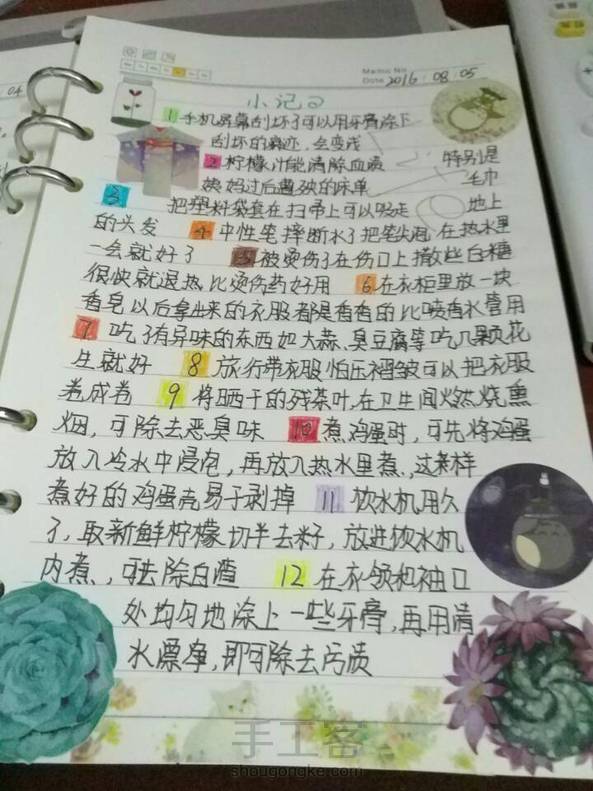 Memo No.
Date 2016.08.05
04
小记
1 手机屏幕刮坏了可以用牙膏涂下
刮坏的痕迹,会变浅
2 柠檬汁能清除血渍 特别是
姨妈过后遭殃的床单 毛巾
3 把塑料袋套在扫帚上可以吸走 地上
的头发 4 中性笔摔断水了把笔尖泡在热水里
一会就好了 5 被烫伤了在伤口上撒些白糖
很快就退热比烫伤药好用 6 在衣柜里放一块
香皂以后拿出来的衣服都是香香的比喷香水管用
7 吃了有异味的东西如大蒜、臭豆腐等吃几颗花
生就好 8 旅行带衣服怕压褶皱可以把衣服
卷成卷 9 将晒干的残茶叶,在卫生间燃烧熏
烟,可除去恶臭味 10 煮鸡蛋时,可先将鸡蛋
放入冷水中浸泡,再放入热水里煮,这样
煮好的鸡蛋壳易于剥掉 11 饮水机用久
了,取新鲜柠檬切半去籽,放进饮水机
内煮,可去除白渣 12 在衣领和袖口
处均匀地涂上一些牙膏,再用清
水漂净,即可除去污渍
手工客
shougongke.com